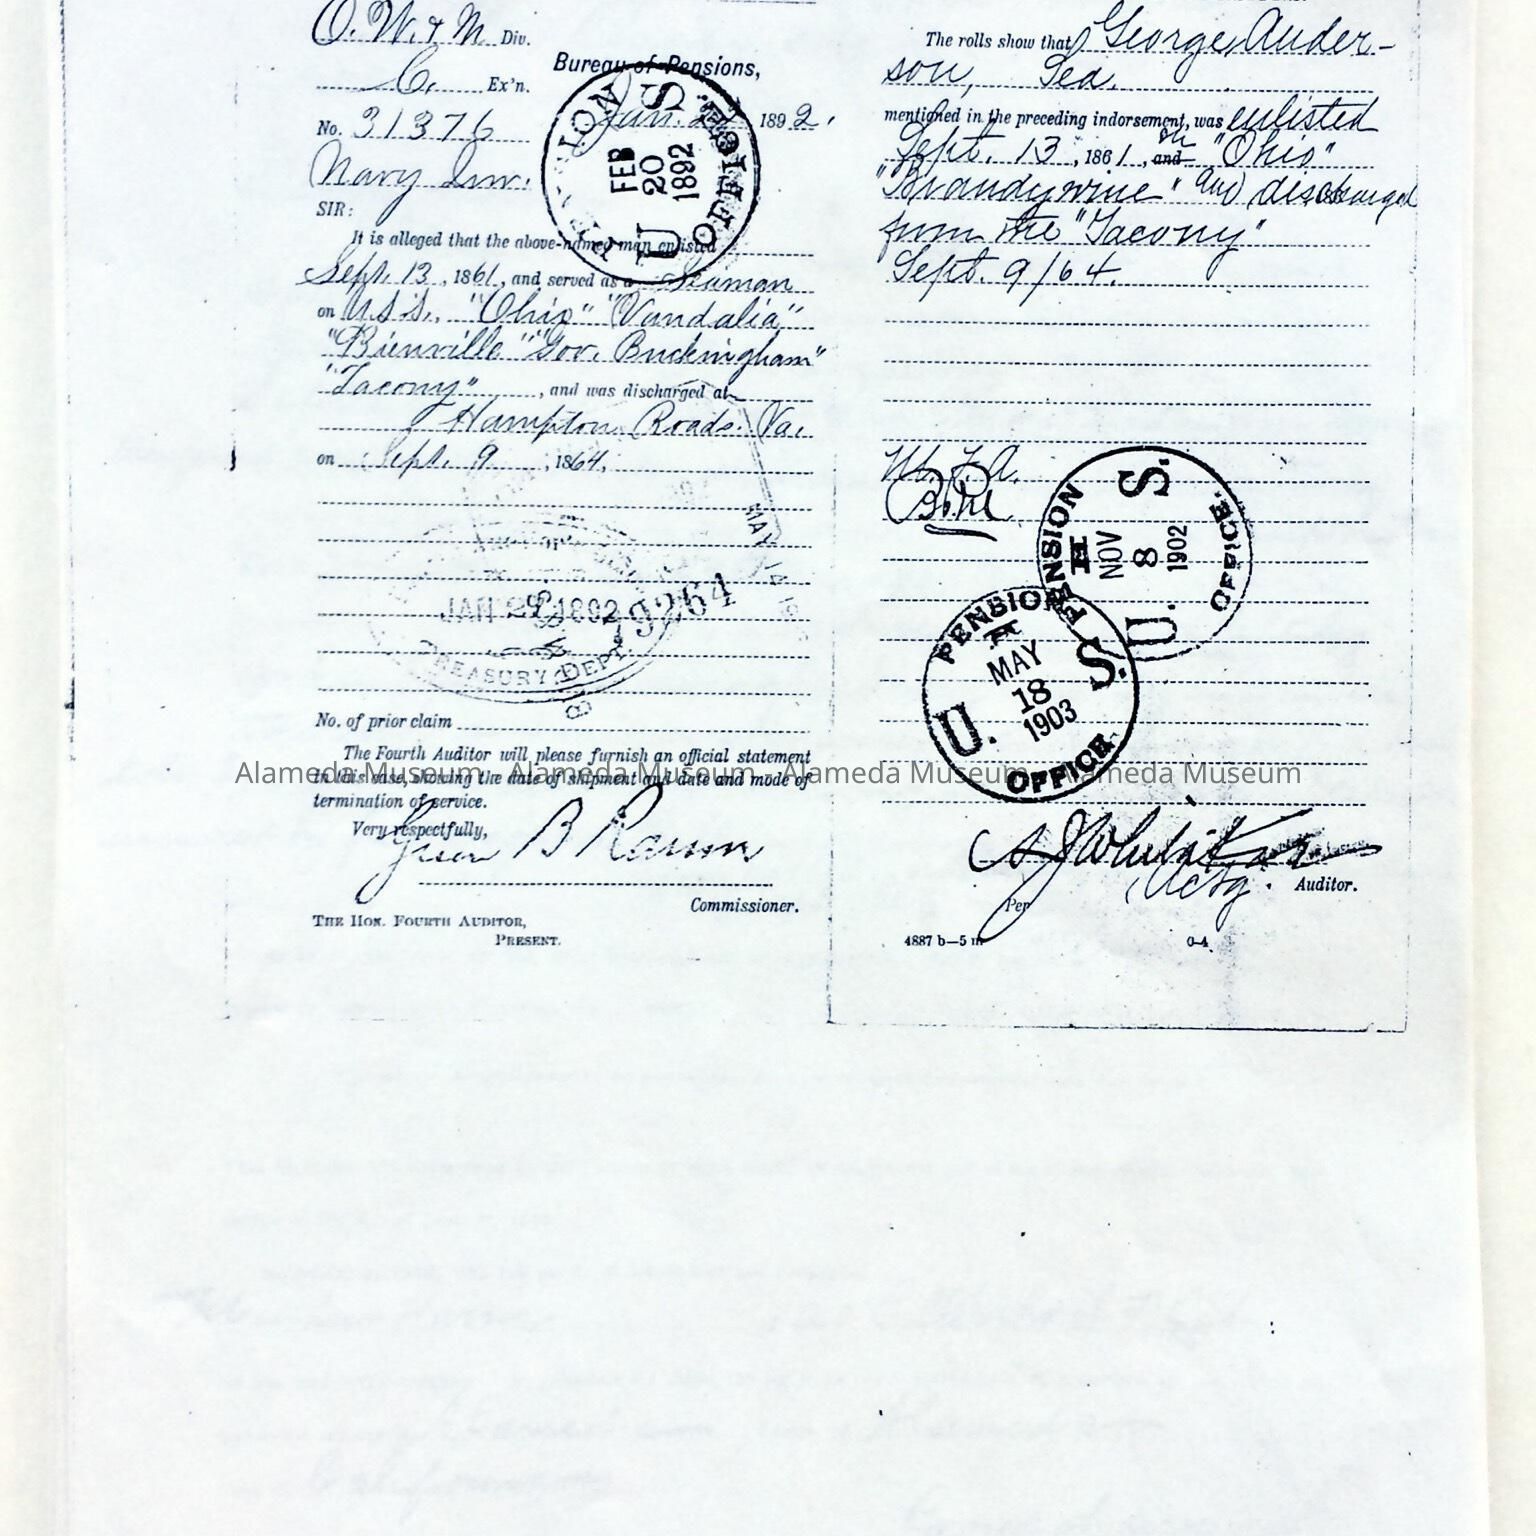 O. W. & M. Div.
C. Ex'n.
Bureau of Pensions,
No. 31376
Jan. 1892.
Navy Inv.
SIR:
It is alleged that the above-named man enlisted
Sept. 13, 1861, and served as a Seaman
on U.S.S. "Ohio" "Vandalia"
"Bienville" "Gov. Buckingham"
"Tacony", and was discharged at
Hampton Roads. Va.
on Sept. 9, 1864.
PENSION OFFICE
U S
FEB
20
1892
JAN 1892
19264
TREASURY DEPT.
MAY 14
No. of prior claim
The Fourth Auditor will please furnish an official statement
in this case, showing the date of shipment and date and mode of
termination of service.
Very respectfully,
Green B Raum
Commissioner.
THE HON. FOURTH AUDITOR,
PRESENT.
The rolls show that George Ander-
son, Sea.
mentioned in the preceding indorsement, was enlisted
Sept. 13, 1861, and on "Ohio"
"Brandywine" and discharged
from the "Tacony"
Sept. 9/64.
PENSION OFFICE.
U. S.
NOV
8
1902
PENSION OFFICE
U. S.
MAY
18
1903
Actg. Auditor.
Per
4887 b—5 m
0-4
Alameda Museum - Alameda Museum - Alameda Museum - Alameda Museum